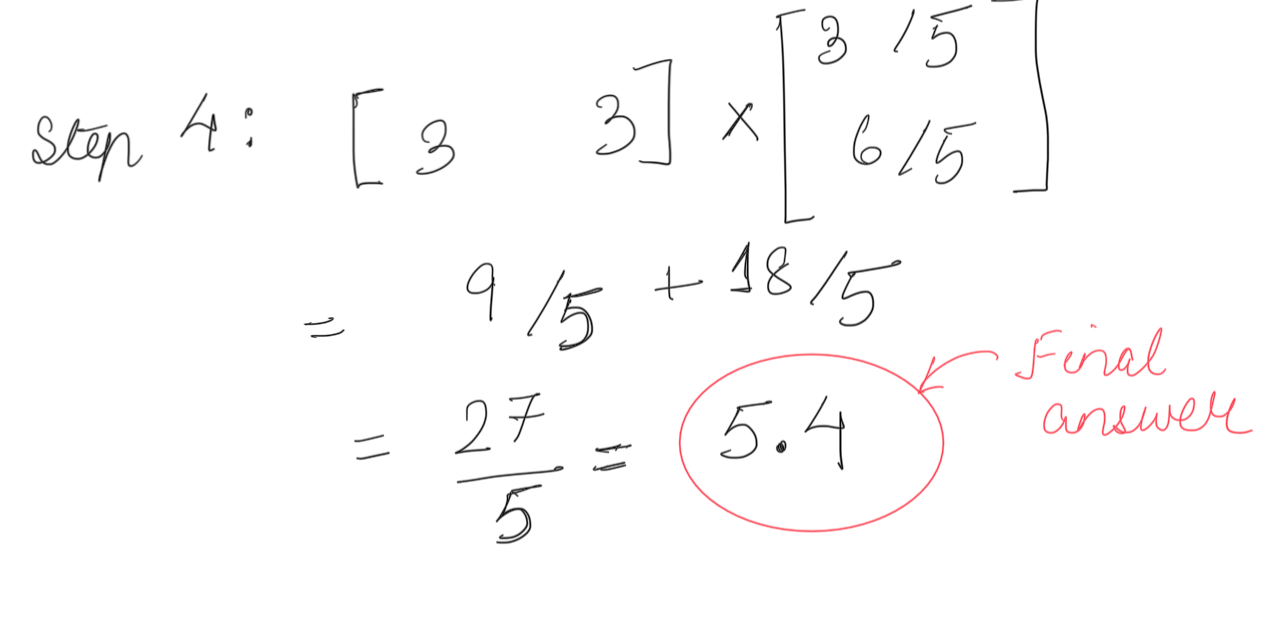 Step 4: [ 3 3 ] × [ 3 /5
6 /5 ]
= 9 /5 + 18 /5
= 27 / 5 = 5.4
Final
answer